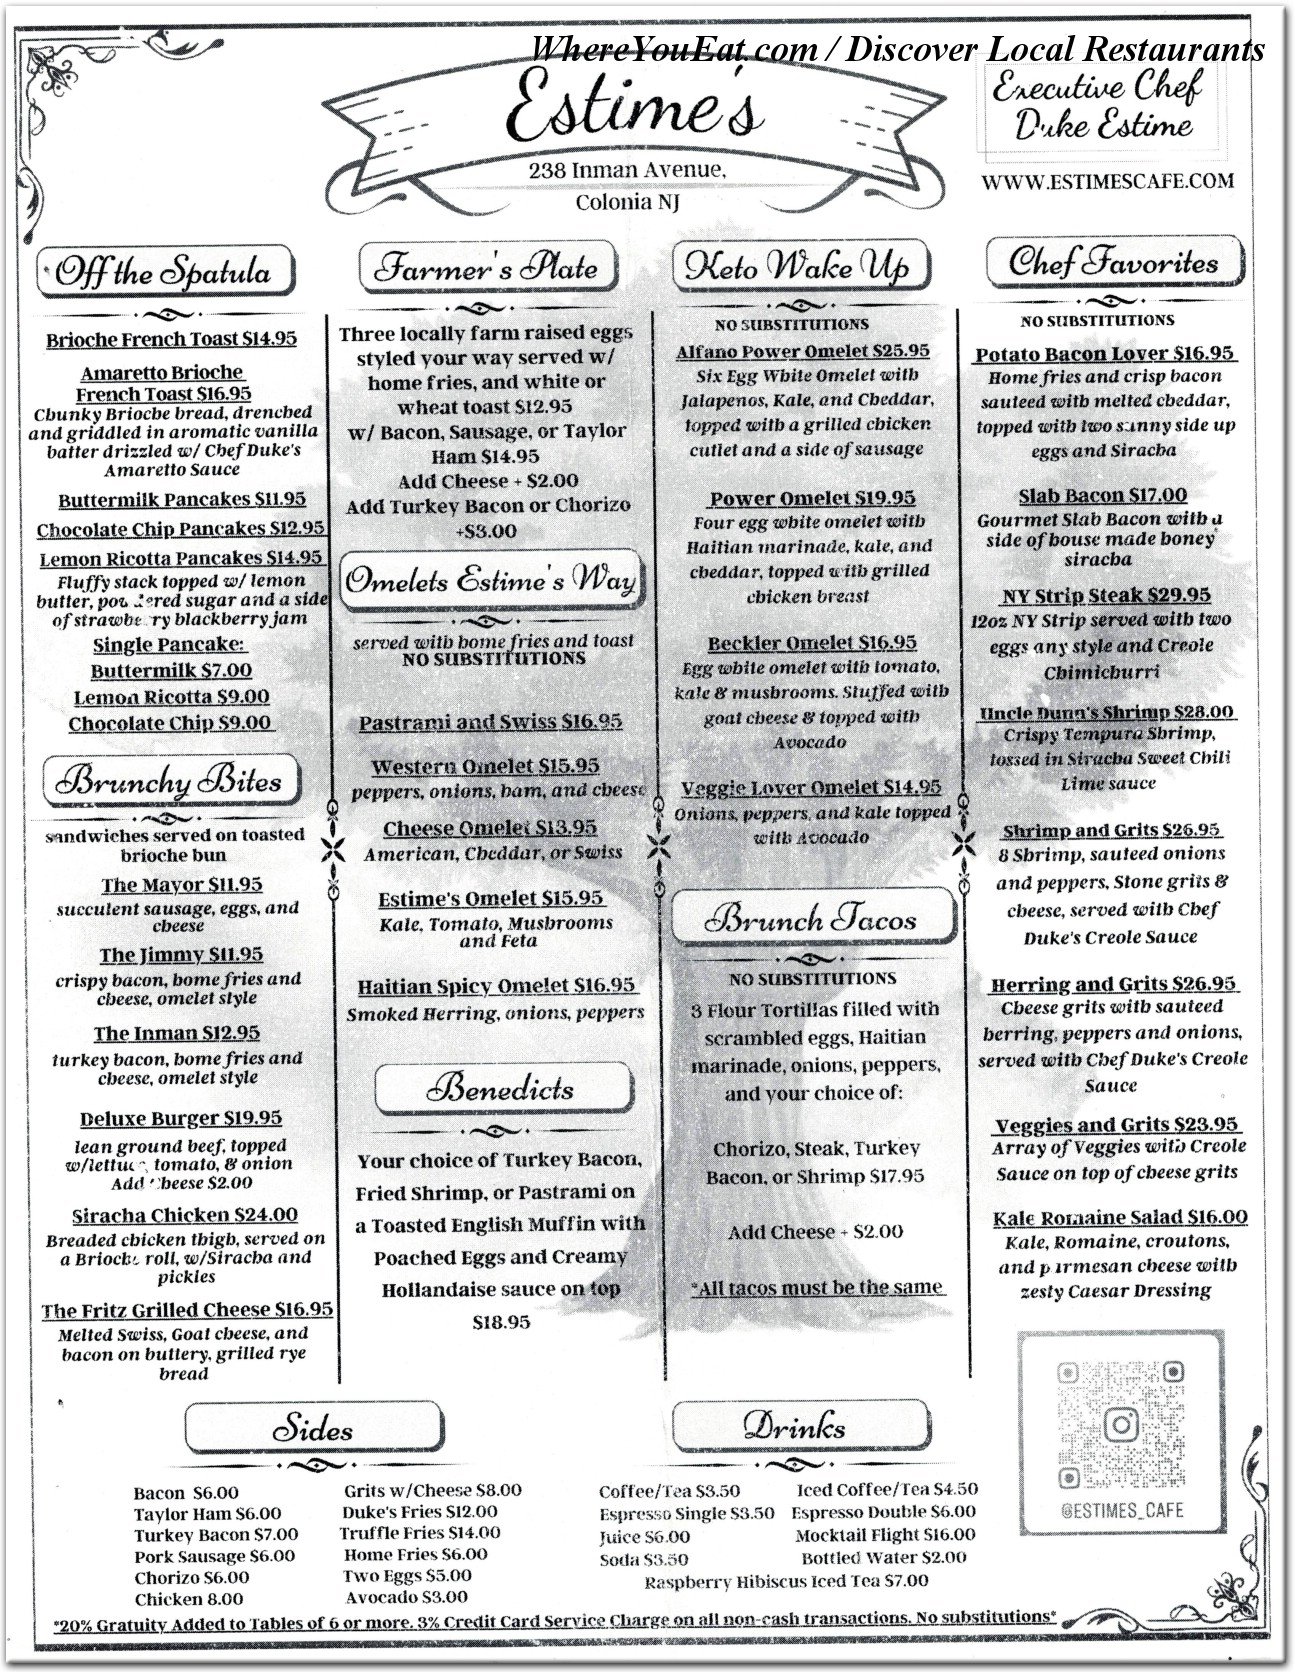 WhereYouEat.com / Discover Local Restaurants
Estime's
238 Inman Avenue,
Colonia NJ
Executive Chef
Duke Estime
WWW.ESTIMESCAFE.COM
Off the Spatula
Brioche French Toast $14.95
Amaretto Brioche
French Toast $16.95
Chunky Brioche bread, drenched
and griddled in aromatic vanilla
batter drizzled w/ Chef Duke's
Amaretto Sauce
Buttermilk Pancakes $11.95
Chocolate Chip Pancakes $12.95
Lemon Ricotta Pancakes $14.95
Fluffy stack topped w/ lemon
butter, powdered sugar and a side
of strawberry blackberry jam
Single Pancake:
Buttermilk $7.00
Lemon Ricotta $9.00
Chocolate Chip $9.00
Brunchy Bites
sandwiches served on toasted
brioche bun
The Mayor $11.95
succulent sausage, eggs, and
cheese
The Jimmy $11.95
crispy bacon, home fries and
cheese, omelet style
The Inman $12.95
turkey bacon, home fries and
cheese, omelet style
Deluxe Burger $19.95
lean ground beef, topped
w/lettuce, tomato, & onion
Add Cheese $2.00
Siracha Chicken $24.00
Breaded chicken thigh, served on
a Brioche roll, w/Siracha and
pickles
The Fritz Grilled Cheese $16.95
Melted Swiss, Goat cheese, and
bacon on buttery, grilled rye
bread
Farmer's Plate
Three locally farm raised eggs
styled your way served w/
home fries, and white or
wheat toast $12.95
w/ Bacon, Sausage, or Taylor
Ham $14.95
Add Cheese + $2.00
Add Turkey Bacon or Chorizo
+$3.00
Omelets Estime's Way
served with home fries and toast
NO SUBSTITUTIONS
Pastrami and Swiss $16.95
Western Omelet $15.95
peppers, onions, ham, and cheese
Cheese Omelet $13.95
American, Cheddar, or Swiss
Estime's Omelet $15.95
Kale, Tomato, Mushrooms
and Feta
Haitian Spicy Omelet $16.95
Smoked Herring, onions, peppers
Benedicts
Your choice of Turkey Bacon,
Fried Shrimp, or Pastrami on
a Toasted English Muffin with
Poached Eggs and Creamy
Hollandaise sauce on top
$18.95
Keto Wake Up
NO SUBSTITUTIONS
Alfano Power Omelet $25.95
Six Egg White Omelet with
Jalapenos, Kale, and Cheddar,
topped with a grilled chicken
cutlet and a side of sausage
Power Omelet $19.95
Four egg white omelet with
Haitian marinade, kale, and
cheddar, topped with grilled
chicken breast
Beckler Omelet $16.95
Egg white omelet with tomato,
kale & mushrooms. Stuffed with
goat cheese & topped with
Avocado
Veggie Lover Omelet $14.95
Onions, peppers, and kale topped
with Avocado
Brunch Tacos
NO SUBSTITUTIONS
3 Flour Tortillas filled with
scrambled eggs, Haitian
marinade, onions, peppers,
and your choice of:
Chorizo, Steak, Turkey
Bacon, or Shrimp $17.95
Add Cheese + $2.00
*All tacos must be the same
Chef Favorites
NO SUBSTITUTIONS
Potato Bacon Lover $16.95
Home fries and crisp bacon
sauteed with melted cheddar,
topped with two sunny side up
eggs and Siracha
Slab Bacon $17.00
Gourmet Slab Bacon with a
side of house made honey
siracha
NY Strip Steak $29.95
12oz NY Strip served with two
eggs any style and Creole
Chimichurri
Uncle Dunn's Shrimp $28.00
Crispy Tempura Shrimp,
tossed in Siracha Sweet Chili
Lime sauce
Shrimp and Grits $26.95
8 Shrimp, sauteed onions
and peppers, Stone grits &
cheese, served with Chef
Duke's Creole Sauce
Herring and Grits $26.95
Cheese grits with sauteed
herring, peppers and onions,
served with Chef Duke's Creole
Sauce
Veggies and Grits $23.95
Array of Veggies with Creole
Sauce on top of cheese grits
Kale Romaine Salad $16.00
Kale, Romaine, croutons,
and parmesan cheese with
zesty Caesar Dressing
@ESTIMES_CAFE
Sides
Bacon $6.00
Taylor Ham $6.00
Turkey Bacon $7.00
Pork Sausage $6.00
Chorizo $6.00
Chicken 8.00
Grits w/Cheese $8.00
Duke's Fries $12.00
Truffle Fries $14.00
Home Fries $6.00
Two Eggs $5.00
Avocado $3.00
Drinks
Coffee/Tea $3.50
Espresso Single $3.50
Juice $6.00
Soda $3.50
Iced Coffee/Tea $4.50
Espresso Double $6.00
Mocktail Flight $16.00
Bottled Water $2.00
Raspberry Hibiscus Iced Tea $7.00
*20% Gratuity Added to Tables of 6 or more. 3% Credit Card Service Charge on all non-cash transactions. No substitutions*